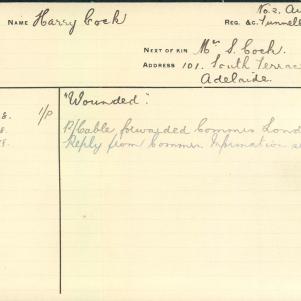 NAME Harry Cock
No. 2. Au
REG. &C. Tunnell
NEXT OF KIN Mrs S. Cock.
ADDRESS 101. South Terrac
Adelaide.
8. 1/P "Wounded".
P/Cable forwarded Commrs Lond
Reply from Commrs Information